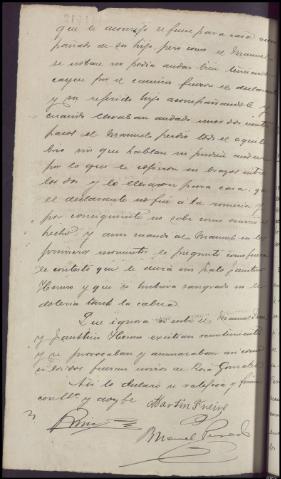 que le aconsejó se fuese para casa acom
pañado de su hijo, pero como el Manuel
se notase no podia andar bien temiendo
cayese por el camino fueron el declarante
y su referido hijo acompañandole y
cuando llevaban andado unos dos cientos
pasos el Manuel perdió todo el equili
brio sin que hablase ni pudiese andar
por lo que le cojieron en brazos entre
los dos y lo llevaron para casa: que
el declarante no fué a la romeria y
por consiguiente no sabe como ocurrió el
hecho y aun cuando al Manuel en los
primeros momentos le preguntó como fuera
le contestó que le diera un palo Faustino
Hermo y que se hubiera sangrado no le
doleria tanto la cabeza
Que ignora si entre el Manuel
y Faustino Hermo existian resentimientos
y se provocaban y amenazaban asi como
si los dos fueron novios de Rosa Gonzalez
Asi lo declaró se ratifica y firma
con S. S. y doy fe Martin Freire
Manuel